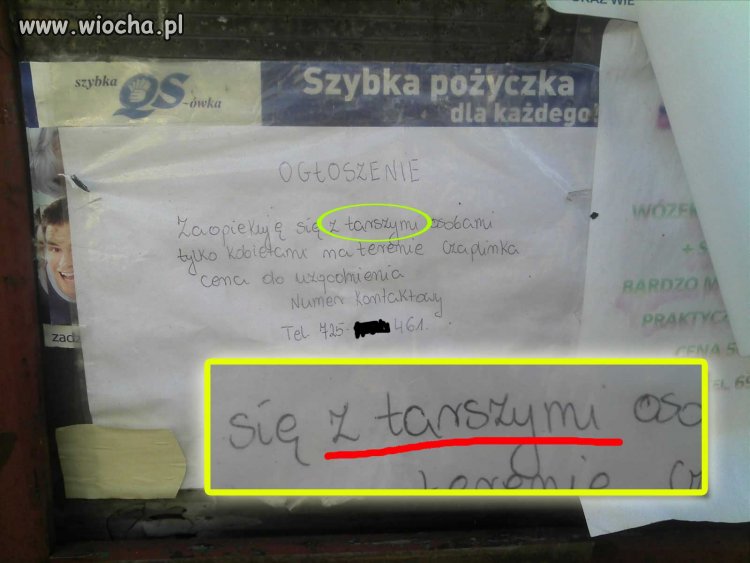 www.wiocha.pl
RAZ WIE
szybka
QS
-ówka
Szybka pożyczka
dla każdego!
OGŁOSZENIE
Zaopiekuję się z tarszymi osobami
tylko kobietami na terenie Czaplinka
cena do uzgodnienia
Numer kontaktowy
Tel 725- 461.
zadz
WÓZE
+ S
BARDZO M
PRAKTYCZ
CENA 5
EL. 69
się z tarszymi oso
terenie Cz